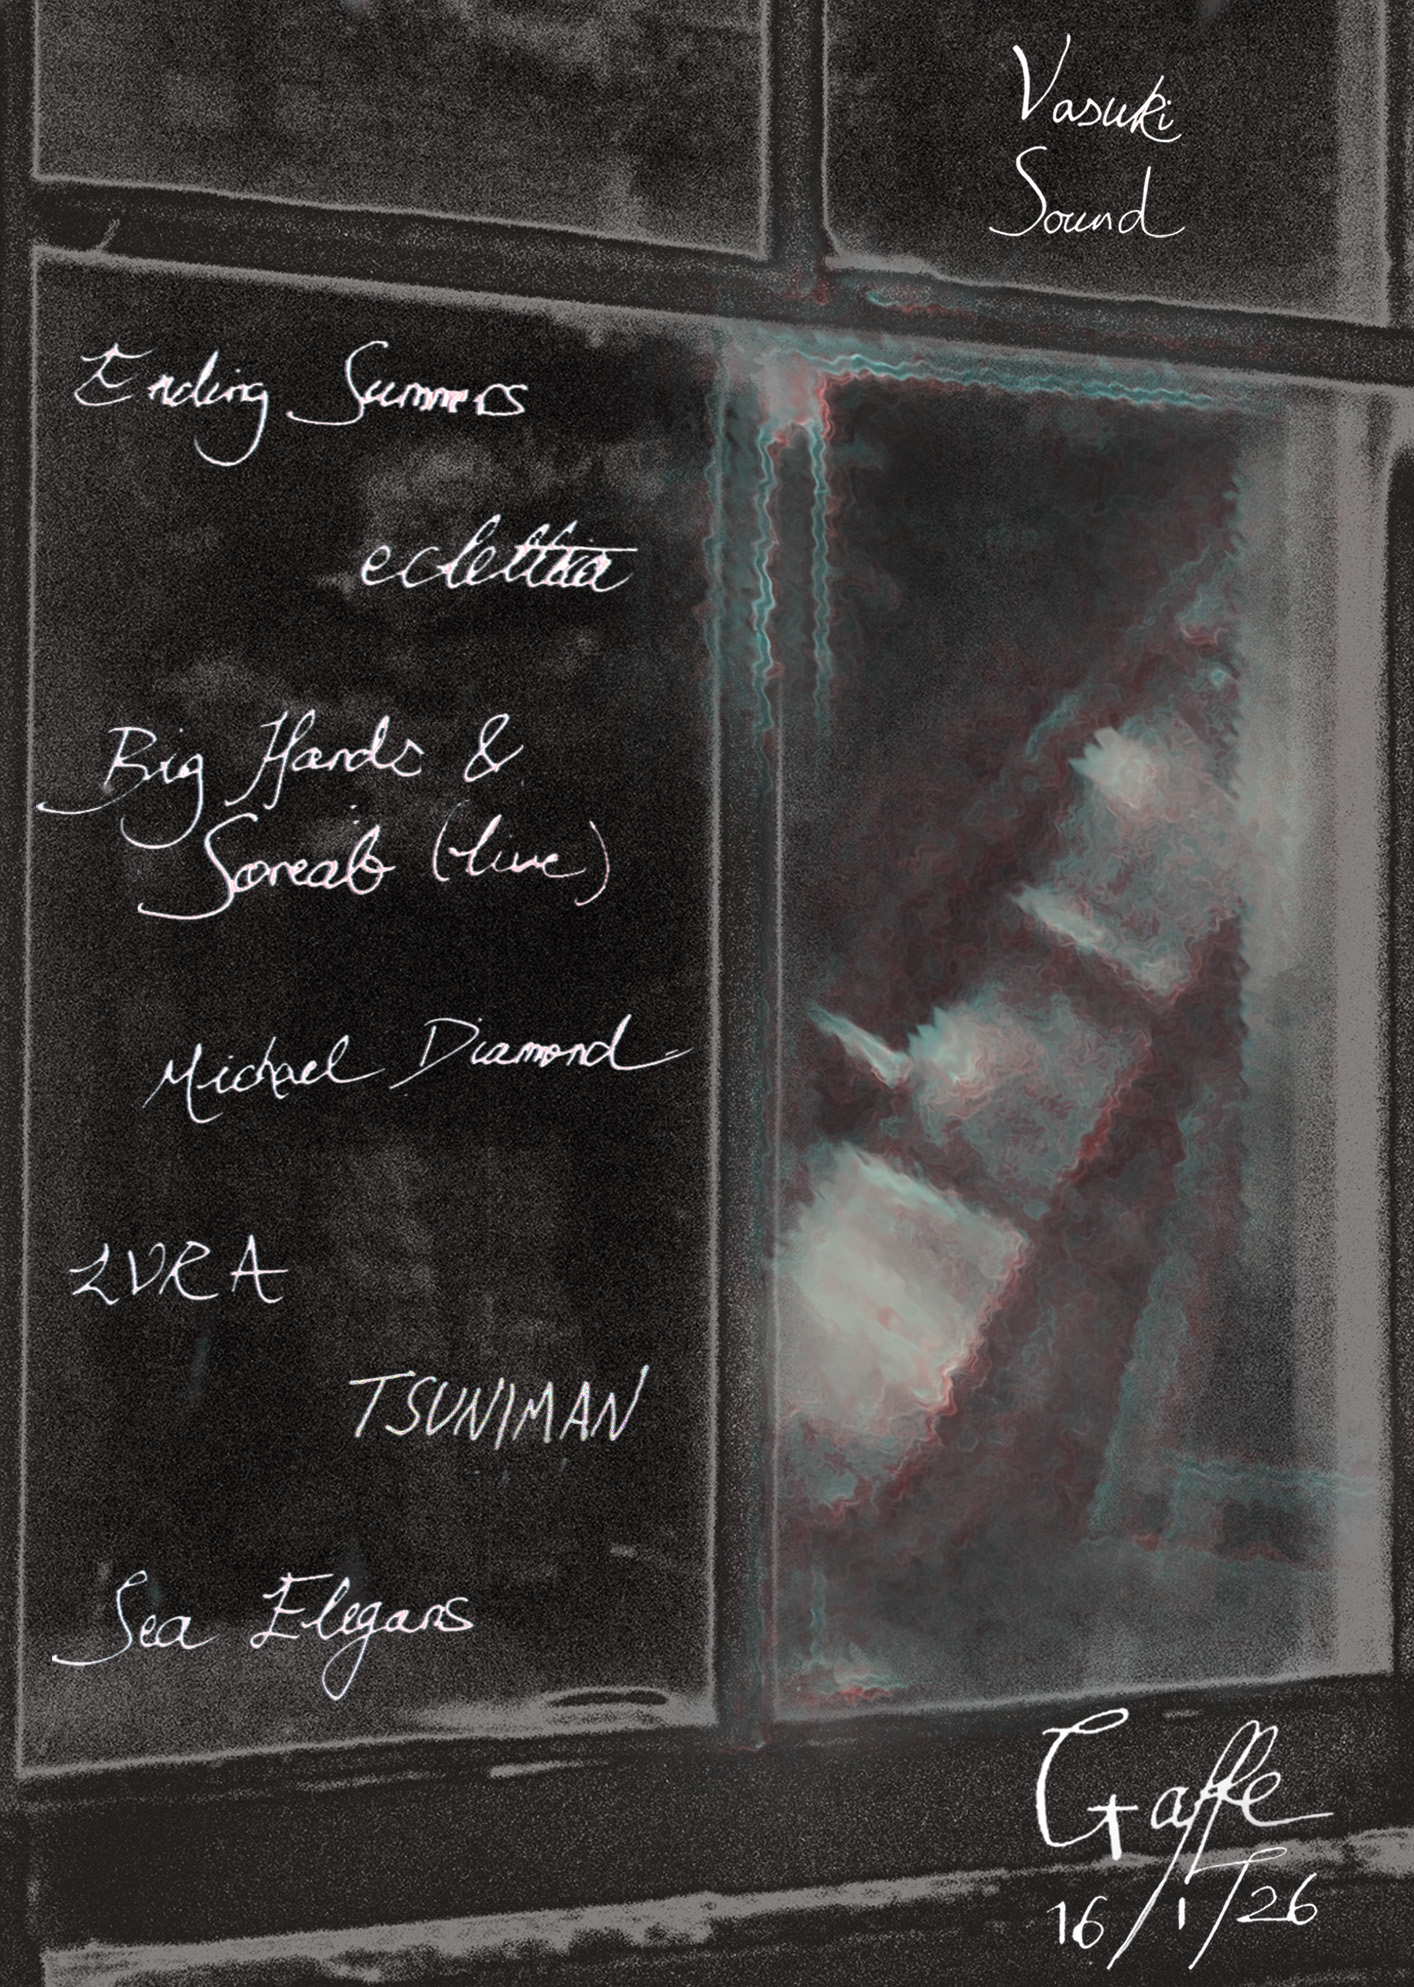 Vasuki
Sound
Ending Summers
eclettica
Big Hands &
Soreab (live)
Michael Diamond
LVRA
TSUNIMAN
Sea Elegans
Gaffe
16/1/26